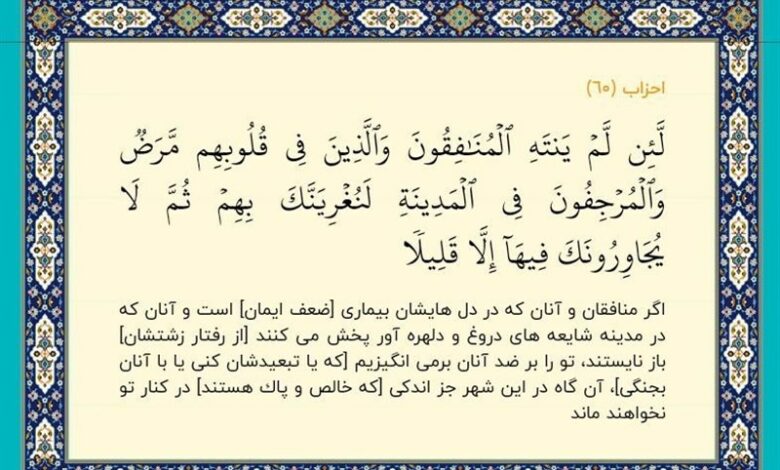 احزاب (۶۰)
لَّئِن لَّمۡ يَنتَهِ ٱلۡمُنَٰفِقُونَ وَٱلَّذِينَ فِي قُلُوبِهِم مَّرَضٞ
وَٱلۡمُرۡجِفُونَ فِي ٱلۡمَدِينَةِ لَنُغۡرِيَنَّكَ بِهِمۡ ثُمَّ لَا
يُجَاوِرُونَكَ فِيهَآ إِلَّا قَلِيلٗا
اگر منافقان و آنان که در دل هایشان بیماری [ضعف ایمان] است و آنان که
در مدینه شایعه های دروغ و دلهره آور پخش می کنند [از رفتار زشتشان]
باز نایستند، تو را بر ضد آنان برمی انگیزیم [که یا تبعیدشان کنی یا با آنان
بجنگی]، آن گاه در این شهر جز اندکی [که خالص و پاك هستند] در کنار تو
نخواهند ماند